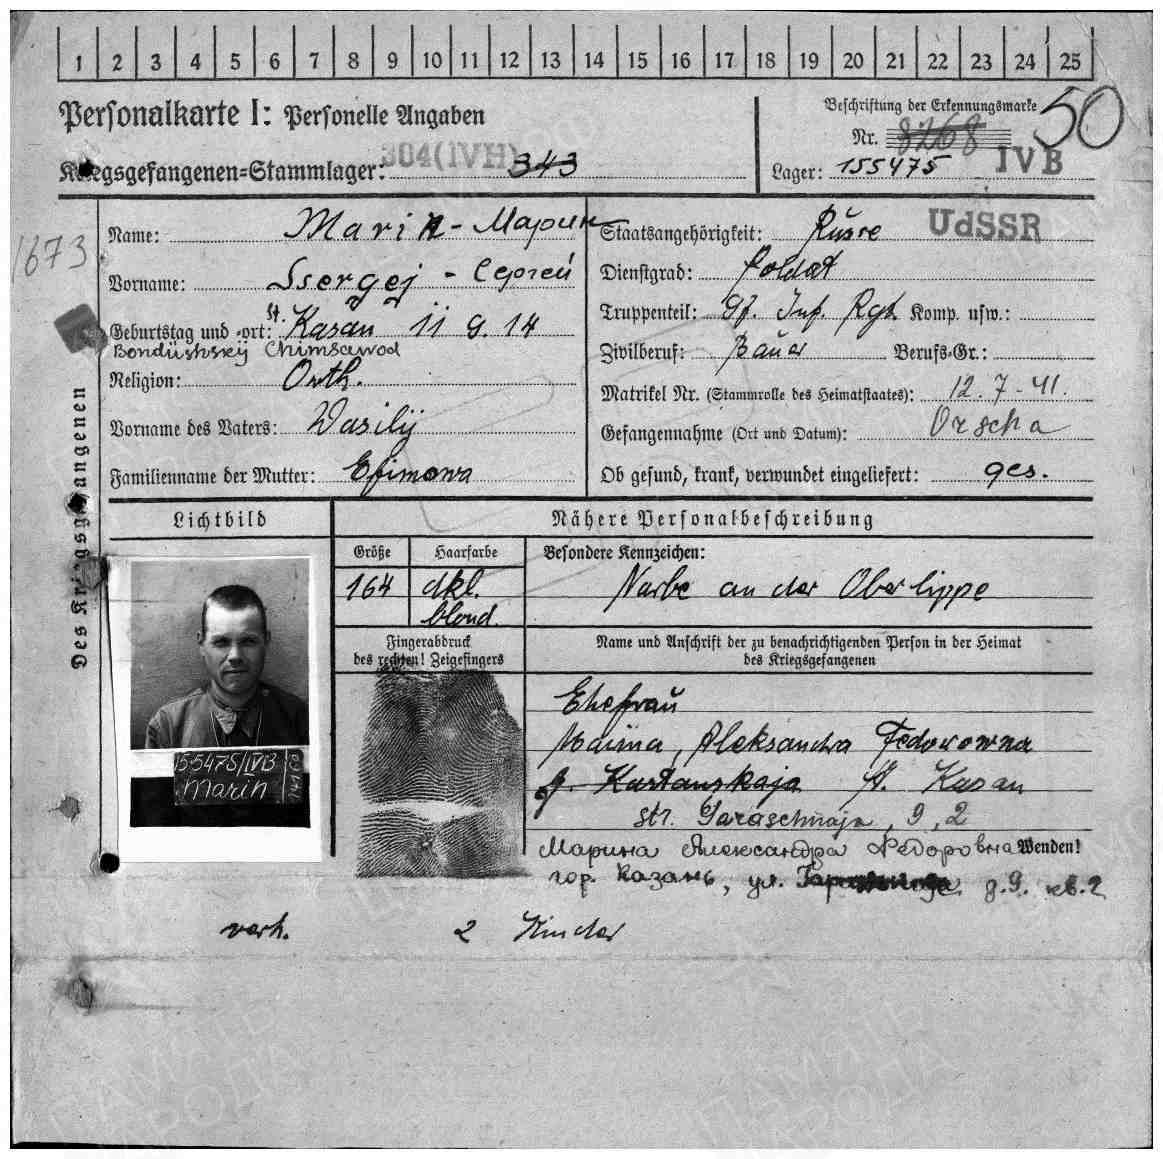 1 2 3 4 5 6 7 8 9 10 11 12 13 14 15 16 17 18 19 20 21 22 23 24 25
Personalkarte I: Personelle Angaben
Beschriftung der Erkennungsmarke
50
Nr. 8268
Kriegsgefangenen=Stammlager: 304(IVH) 343
Lager: 155475 IVB
1673
Des Kriegsgefangenen
Name: Marin - Марин
Vorname: Ssergej - Сергей
Geburtstag und -ort: St. Kasan 11 9. 14
Bondüshskij Chimsawod
Religion: Orth.
Vorname des Vaters: Wasilij
Familienname der Mutter: Efimowa
Staatsangehörigkeit: Russe UdSSR
Dienstgrad: Soldat
Truppenteil: Gf. Inf. Rgt. Komp. usw.:
Zivilberuf: Bauer Berufs=Gr.:
Matrikel Nr. (Stammrolle des Heimatstaates): 12. 7 - 41.
Gefangennahme (Ort und Datum): Orscha
Ob gesund, krank, verwundet eingeliefert: ges.
Lichtbild
Nähere Personalbeschreibung
Größe
164
Haarfarbe
dkl.
blond.
Besondere Kennzeichen:
Narbe an der Oberlippe
Fingerabdruck
des rechten! Zeigefingers
Name und Anschrift der zu benachrichtigenden Person in der Heimat
des Kriegsgefangenen
Ehefrau
Marina, Aleksandra Fedorowna
St. Kasan
str. Garaschnaja, 9, 2
Марина Александра Федоровна
Wenden!
гор. Казань, ул. д. 9. кв. 2
155475/IVB
Marin
verh. 2 Kinder
ПАМЯТЬ НАРОДА